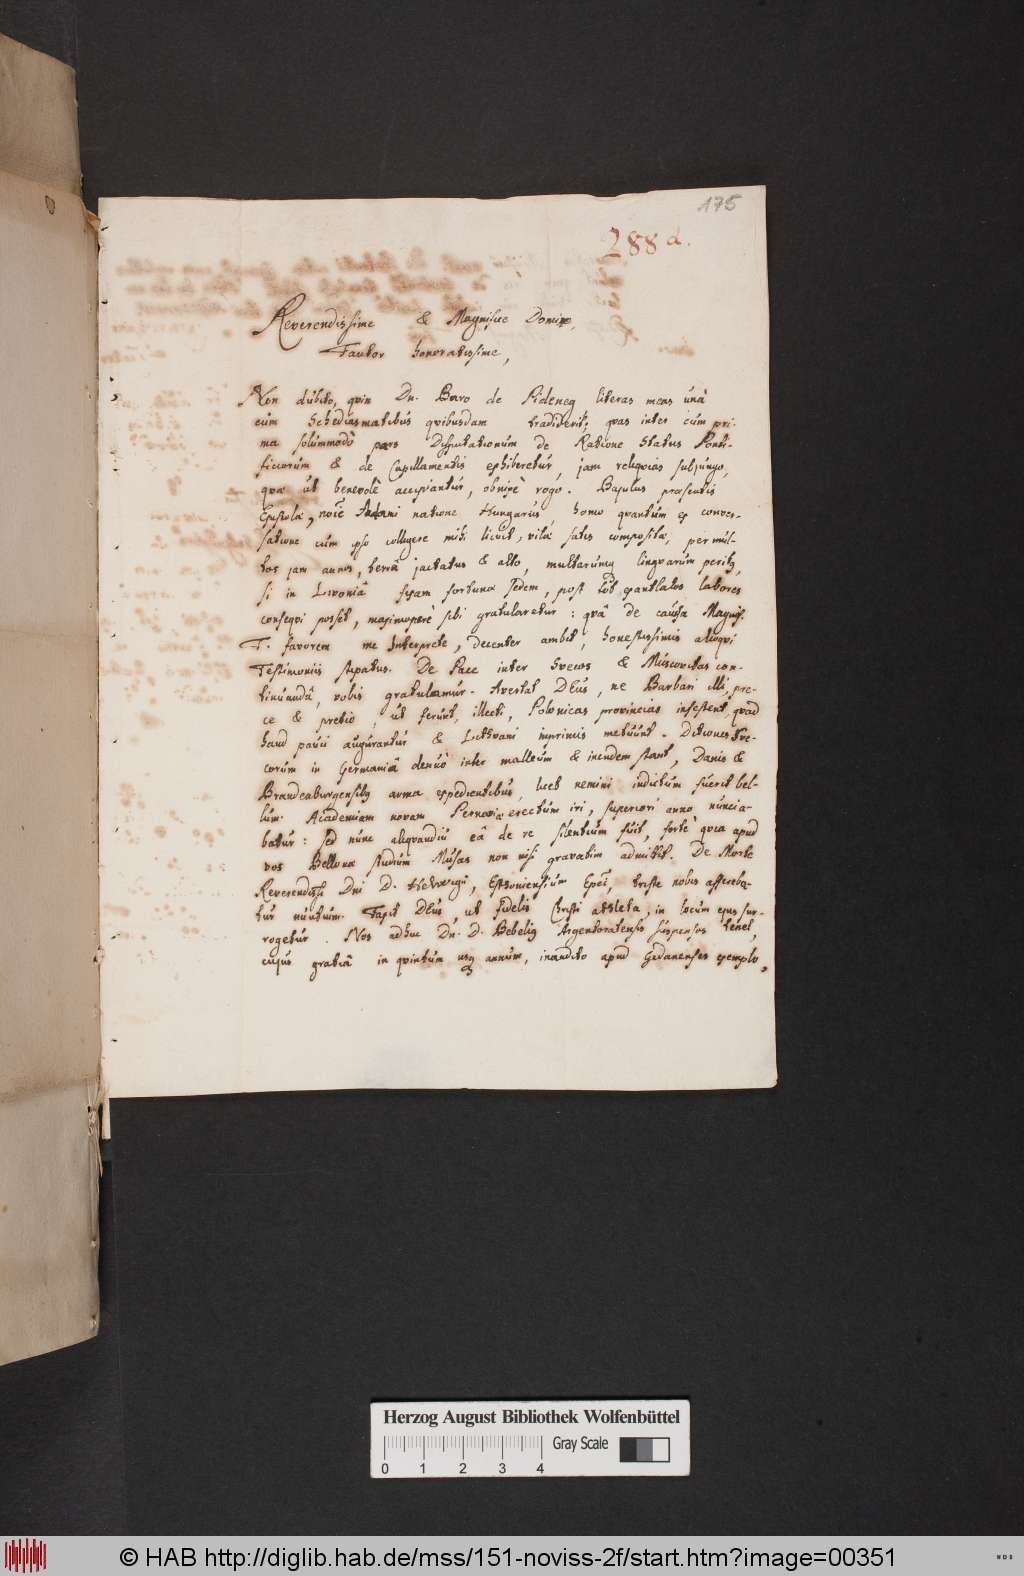 175
288 a.
Reverendissime & Magnifice Domine,
Fautor honoratissime,
Non dubito, quin Dn. Baro de literas meas unà
cum Schediasmatibus quibusdam tradiderit; quas inter cùm pri-
ma solummodò pars Disputationum de Ratione Status Ponti-
ficiorum & de Capillamentis exhiberetur, jam reliquias subjungo,
quæ ut benevolè accipiantur, obnixè rogo. Bajulus præsentis
Epistolæ, natione Hungarus homo quantum ex conver-
satione cum ipso colligere mihi licuit, vitâ satis compositâ, per mul-
tos jam annos, terrâ jactatus & alto, multarumq linguarum peritq,
si in Livoniâ fixam fortunæ sedem, post tot exantlatos labores
consequi posset, maximopere sibi gratularetur: quâ de caussa Magnif.
T. favorem me Interprete, decenter ambit, honestissimis alioqui
Testimoniis stipatus. De Pace inter Svecos & Muscovitas con-
tinuandâ, vobis gratulamur. Avertat DEus, ne Barbari illi, pre-
ce & pretio, ut ferunt, illecti, Polonicas provincias infestent, quod
haud pauci augurantur & Lithvani inprimis metuunt. Ditiones Sve-
corum in Germaniâ denuò inter malleum & incudem stant, Danis &
Brandeburgensibq arma expedientibus, licet nemini indictum fuerit bel-
lum. Academiam novam Pernaviæ erectum iri, superiori anno nuncia-
batur: sed nunc aliquandiu eâ de re silentium fuit, fortè quia apud
vos Bellonæ studium Musas non nisi gravatim admittit. De Morte
Reverendiss. Dni D. Helwigii, Esthoniensium Epi, triste nobis affereba-
tur nuntium. Faxit DEus, ut fidelis Christi athleta, in locum ejus sur-
rogetur. Nos adhuc Dn. D. Bebeliq Argentoratensis suspensos tenet,
cujus gratiâ in quintum usq annum, inaudito apud Gedanenses exemplo,
Herzog August Bibliothek Wolfenbüttel
0 1 2 3 4
Gray Scale
© HAB http://diglib.hab.de/mss/151-noviss-2f/start.htm?image=00351